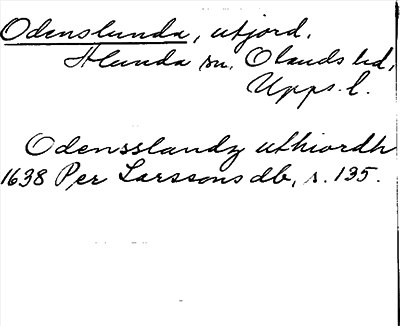 Odenslunda, utjord.
Alunda sn. Olands hd,
Upps. l.
Odensslandz uthiordh
1638 Per Larssons db, s. 135.